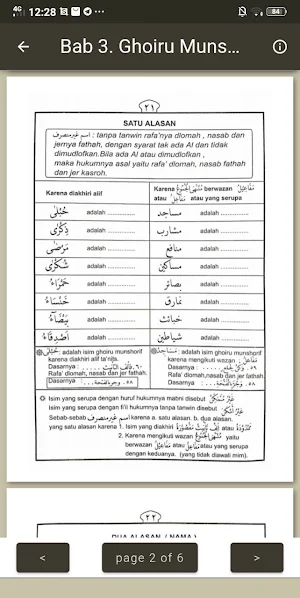 12:28
84
Bab 3. Ghoiru Muns...
(٢١)
SATU ALASAN
اسم غير منصرف : tanpa tanwin rafa'nya dlomah , nasab dan
jernya fathah, dengan syarat tak ada Al dan tidak
dimudlofkan.Bila ada Al atau dimudlofkan ,
maka hukumnya asal yaitu rafa' dlomah, nasab fathah
dan jer kasroh.
Karena diakhiri alif
Karena مُنْتَهَى الْجُمُوْعِ berwazan مَفَاعِيْلُ
atau مَفَاعِلُ atau yang serupa
حُبْلَى adalah ............... مساجد adalah ...............
ذِكْرَى adalah ............... مشارب adalah ...............
مَرْضَى adalah ............... منافع adalah ...............
شَكْرَى adalah ............... مساكين adalah ...............
حَمْرَاءُ adalah ............... بصائر adalah ...............
خَنْسَاءُ adalah ............... نمارق adalah ...............
بَيْضَاءُ adalah ............... خبائث adalah ...............
أَصْدِقَاءُ adalah ............... شياطين adalah ...............
حُبْلَى : adalah isim ghoiru munshorif
karena diakhiri alif ta'nits.
Dasarnya : . . . . . فَأَلِفُ التَّأْنِيْثِ ٦٠
Rafa' dlomah, nasab dan jer fathah.
Dasarnya : . . . . وَجُرَّ بِالْفَتْحَةِ ٥٨
مَسَاجِدُ : adalah isim ghoiru munshorif
karena mengikuti wazan : مَفَاعِلُ
Dasarnya : . . . . وَكُنْ لِجَمْعٍ ٥٩
Rafa' dlomah,nasab dan jer fathah.
Dasarnya : . . . وَجُرَّ بِالْفَتْحَةِ ٥٨
Isim yang serupa dengan huruf hukumnya mabni disebut غَيْرُ مُتَمَكِّنٍ
Isim yang serupa dengan fi'il hukumnya tanpa tanwin disebut غَيْرُ أَمْكَنَ
Sebab-sebab اسم غير منصرف karena a. satu alasan. b. dua alasan.
yang satu alasan karena 1. Isim yang diakhiri أَلِفُ تَأْنِيْثٍ مَقْصُوْرَةٌ atau مَمْدُوْدَةٌ
2. Karena mengikuti wazan مُنْتَهَى الْجُمُوْعِ yaitu
berwazan مَفَاعِيْلُ atau مَفَاعِلُ atau yang serupa dengan
dengan keduanya. (yang tidak diawali mim).
(٢٢)
DUA ALASAN ( NAMA )
<
page 2 of 6
>